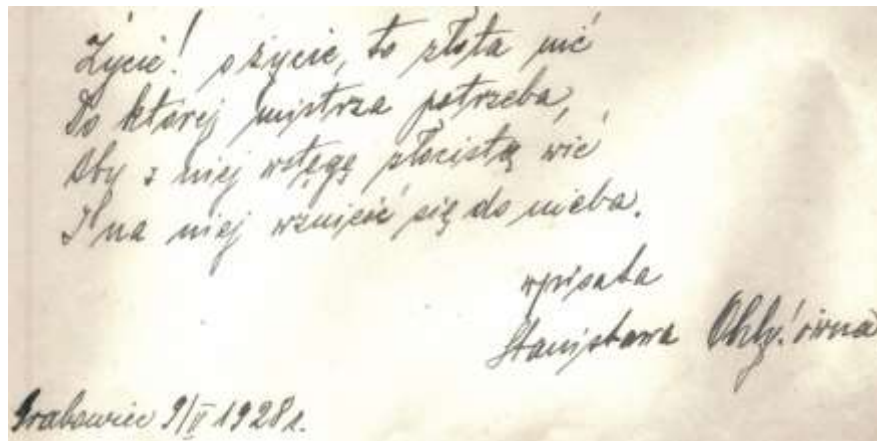 Życie! o życie, to złota nić
Do której mistrza potrzeba,
Aby z niej wstęgę złocistą wić
I na niej wznieść się do nieba.
wpisała
Stanisława
Grabowiec 9/II 1928 r.